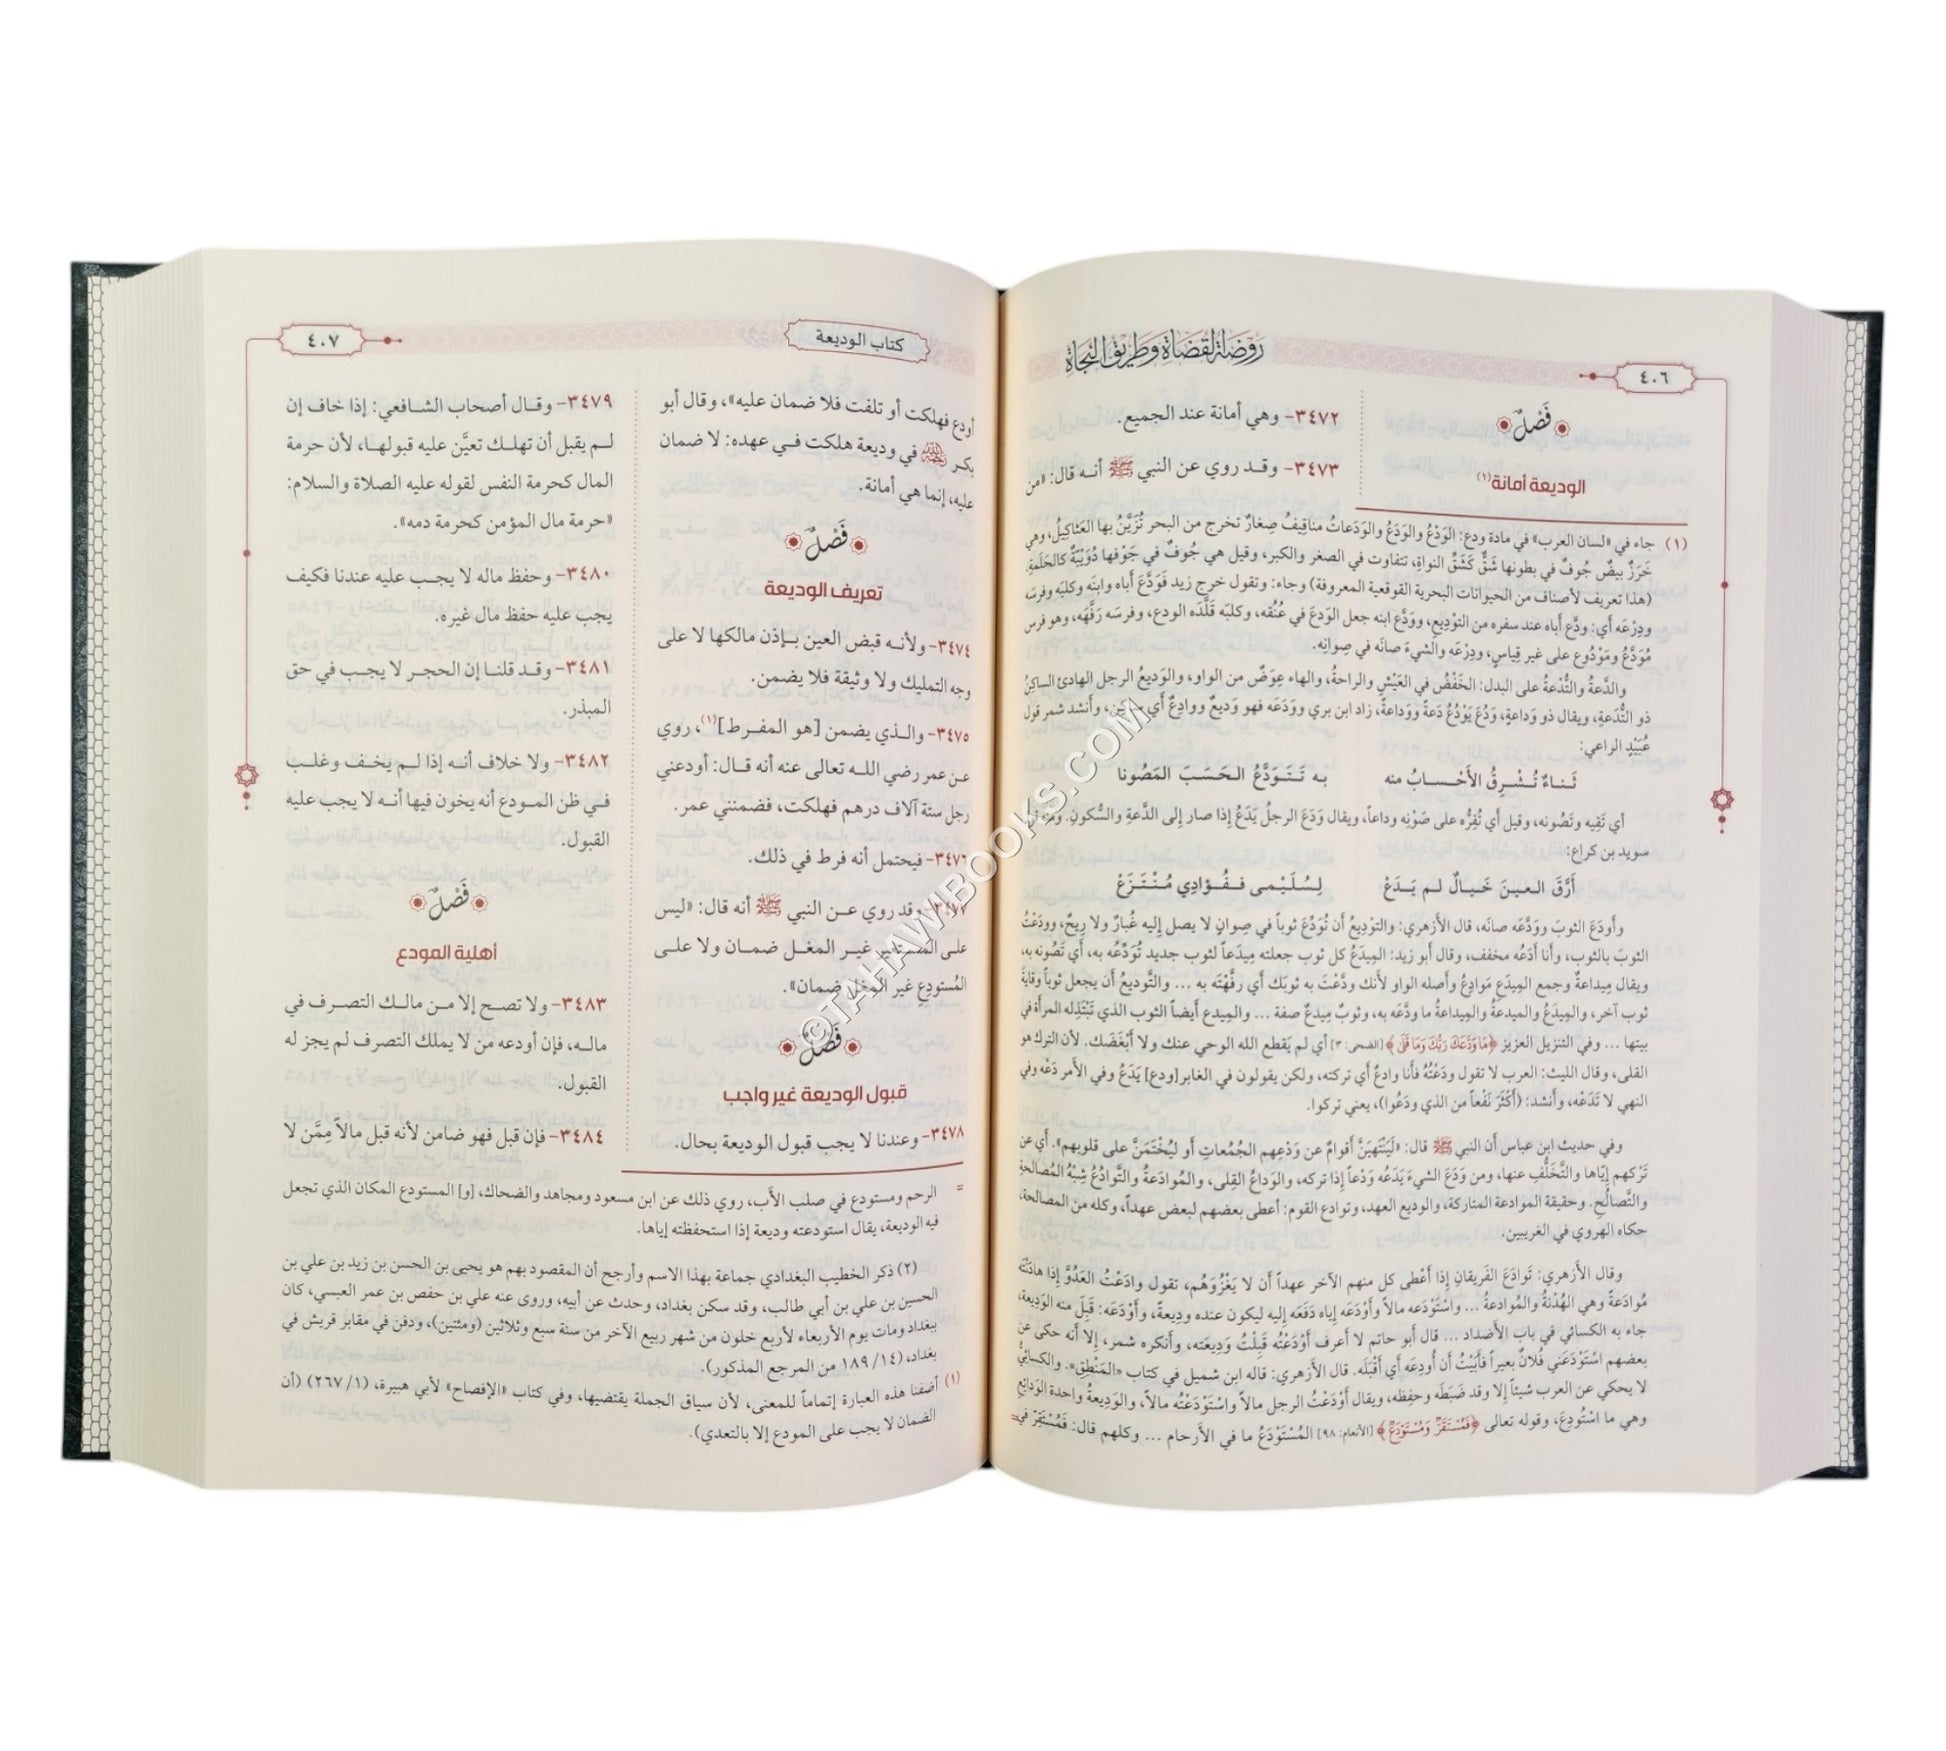 ٤٠٦
روضة القضاة وطريق النجاة
فَصْلٌ
الوديعة أمانة(١)
٣٤٧٢- وهي أمانة عند الجميع.
٣٤٧٣- وقد روي عن النبي ﷺ أنه قال: «من
(١) جاء في «لسان العرب» في مادة ودع: الوَدْعُ والوَدَعُ والوَدَعاتُ مناقِيفُ صِغارٌ تخرج من البحر تُزَيَّنُ بها العَثاكِيلُ، وهي
خَرَزٌ بيضٌ جُوفٌ في بطونها شَقٌّ كَشَقِّ النواةِ، تتفاوت في الصغر والكبر، وقيل هي جُوفٌ في جَوْفها دُوَيْبّةٌ كالحَلَمةِ.
(هذا تعريف لأصناف من الحيوانات البحرية القوقعية المعروفة) وجاء: وتقول خرج زيد فَوَدَّعَ أَباه وابنَه وكلبَه وفرسَه
ودِرْعَه أي: ودَّع أباه عند سفره من التوْدِيعِ، ووَدَّع ابنه جعل الوَدعَ في عُنُقه، وكلبَه قَلَّدَه الودع، وفرسَه رَفَّهَه، وهو فرس
مُوَدَّعٌ ومَوْدُوع على غير قِياسٍ، ودِرْعَه والشيءَ صانَه في صِوانِه.
والدَّعةُ والتُّدْعةُ على البدل: الخَفْضُ في العَيْشِ والراحةُ، والهاء عِوَضٌ من الواو، والوَديعُ الرجل الهادئ الساكِنُ
ذو التُّدَعةِ، ويقال ذو وَداعةٍ، وَدُعَ يَوْدُعُ دَعةً ووَداعةً، زاد ابن بري ووَدَعَه فهو وَديعٌ ووادِعٌ أي ساكن، وأنشد شمر قول
عُبَيْدٍ الراعي:
ثَناءٌ تُشْرِقُ الأَحْسابُ منه به تَتَوَدَّعُ الحَسَبَ المَصُونا
أي تَقِيه وتَصُونه، وقيل أي تُقِرُّه على صَوْنِه وداعاً، ويقال وَدَعَ الرجلُ يَدَعُ إذا صار إلى الدَّعةِ والسُّكونِ. ومنه قول
سويد بن كراع:
أَرَّقَ العينَ خَيالٌ لم يَدَعْ لِسُلَيْمى ففُؤادِي مُنْتَزَعْ
وأَودَعَ الثوبَ ووَدَّعَه صانَه، قال الأَزهري: والتوْدِيعُ أَن تُوَدِّعَ ثوباً في صِوانٍ لا يصل إليه غُبارٌ ولا رِيحٌ، وودَعْتُ
الثوبَ بالثوب، وأنا أَدَعُه مخفف، وقال أبو زيد: المِيدَعُ كل ثوب جعلته مِيدَعاً لثوب جديد تُوَدِّعُه به، أي تَصُونه به،
ويقال مِيداعةٌ وجمع المِيدَعِ مَوادِعُ وأصله الواو لأنك ودَّعْتَ به ثوبَك أي رفَّهْتَه به ... والتَّوديعُ أن يجعل ثوباً وقايةَ
ثوب آخر، والمِيدَعُ والميدعةُ والمِيداعةُ ما ودَّعَه به، وثوبٌ مِيدعٌ صفة ... والمِيدع أيضاً الثوب الذي تَبْتَذِله المرأة في
بيتها ... وفي التنزيل العزيز ﴿مَا وَدَّعَكَ رَبُّكَ وَمَا قَلَى﴾ [الضحى: ٣] أي لم يَقطعِ الله الوحي عنك ولا أَبْغَضَك. لأن الترك هو
القلى، وقال الليث: العرب لا تقول ودَعْتُهُ فأنا وادعٌ أي تركته، ولكن يقولون في الغابر [ودع] يَدَعُ وفي الأمر دَعْه وفي
النهي لا تَدَعْه، وأنشد: (أَكْثَرَ نَفْعاً من الذي ودَعُوا)، يعني تركوا.
وفي حديث ابن عباس أن النبي ﷺ قال: «لَيَنْتَهِيَنَّ أَقوامٌ عن وَدْعِهم الجُمُعاتِ أو ليُخْتَمَنَّ على قلوبهم». أي عن
تَرْكهم إيّاها والتَّخَلُّفِ عنها، ومن وَدَعَ الشيءَ يَدَعُه وَدْعاً إذا تركه، والوَداعُ القِلى، والمُوادَعةُ والتَّوادُعُ شِبْهُ المُصالحةِ
والتَّصالُحِ. وحقيقة الموادعة المتاركة، والوديع العهد، وتوادع القوم: أعطى بعضهم لبعض عهداً، وكله من المصالحة،
حكاه الهروي في الغريبين.
وقال الأزهري: تَوادَعَ الفَريقانِ إذا أعْطى كل منهم الآخر عهداً أن لا يَغْزُوَهُم، تقول وادَعْتُ العَدُوَّ إذا هادَنْتَه
مُوادَعةً وهي الهُدْنةُ والمُوادعةُ ... واسْتَوْدَعه مالاً وأَوْدَعَه إياه دَفَعَه إليه ليكون عنده ودِيعةً، وأَوْدَعَه: قَبِلَ منه الوَدِيعة،
جاء به الكسائي في باب الأضداد ... قال أبو حاتم لا أعرف أَوْدَعْتُه قَبِلْتُ وَدِيعتَه، وأنكره شمر، إلا أنه حكى عن
بعضهم اسْتَوْدَعَني فُلانٌ بعيراً فأَبَيْتُ أن أُودِعَه أي أَقْبَلَه. قال الأزهري: قاله ابن شميل في كتاب «المَنْطِق». والكسائيُّ
لا يحكي عن العرب شيئاً إلا وقد ضَبَطَه وحفِظه، ويقال أَوْدَعْتُ الرجل مالاً واسْتَوْدَعْتُه مالاً، والوَدِيعةُ واحدة الوَدائِعِ
وهي ما اسْتُودِعَ، وقوله تعالى ﴿فَمُسْتَقَرٌّ وَمُسْتَوْدَعٌ﴾ [الأنعام: ٩٨] المُسْتَوْدَعُ ما في الأرحام ... وكلهم قال: فَمُسْتَقِرّ في =
كتاب الوديعة
٤٠٧
أودع فهلكت أو تلفت فلا ضمان عليه»، وقال أبو
بكر رضي الله عنه في وديعة هلكت في عهده: لا ضمان
عليه، إنما هي أمانة.
فَصْلٌ
تعريف الوديعة
٣٤٧٤- ولأنه قبض العين بإذن مالكها لا على
وجه التمليك ولا وثيقة فلا يضمن.
٣٤٧٥- والذي يضمن [هو المفرط](١)، روي
عن عمر رضي الله تعالى عنه أنه قال: أودعني
رجل ستة آلاف درهم فهلكت، فضمنني عمر.
٣٤٧٦- فيحتمل أنه فرط في ذلك.
٣٤٧٧- وقد روي عن النبي ﷺ أنه قال: «ليس
على المستعير غير المغل ضمان ولا على
المُستودِع غير المغل ضمان».
فَصْلٌ
قبول الوديعة غير واجب
٣٤٧٨- وعندنا لا يجب قبول الوديعة بحال.
٣٤٧٩- وقال أصحاب الشافعي: إذا خاف إن
لم يقبل أن تهلك تعيَّن عليه قبولها، لأن حرمة
المال كحرمة النفس لقوله عليه الصلاة والسلام:
«حرمة مال المؤمن كحرمة دمه».
٣٤٨٠- وحفظ ماله لا يجب عليه عندنا فكيف
يجب عليه حفظ مال غيره.
٣٤٨١- وقد قلنا إن الحجر لا يجب في حق
المبذر.
٣٤٨٢- ولا خلاف أنه إذا لم يخف وغلب
في ظن المودع أنه يخون فيها أنه لا يجب عليه
القبول.
فَصْلٌ
أهلية المودع
٣٤٨٣- ولا تصح إلا من مالك التصرف في
ماله، فإن أودعه من لا يملك التصرف لم يجز له
القبول.
٣٤٨٤- فإن قبل فهو ضامن لأنه قبل مالاً مِمَّن لا
= الرحم ومستودع في صلب الأب، روي ذلك عن ابن مسعود ومجاهد والضحاك، [و] المستودع المكان الذي تجعل
فيه الوديعة، يقال استودعته وديعة إذا استحفظته إياها.
(٢) ذكر الخطيب البغدادي جماعة بهذا الاسم وأرجح أن المقصود بهم هو يحيى بن الحسن بن زيد بن علي بن
الحسين بن علي بن أبي طالب، وقد سكن بغداد، وحدث عن أبيه، وروى عنه علي بن حفص بن عمر العبسي، كان
ببغداد ومات يوم الأربعاء لأربع خلون من شهر ربيع الآخر من سنة سبع وثلاثين (ومئتين)، ودفن في مقابر قريش في
بغداد، (١٨٩/١٤ من المرجع المذكور).
(١) أضفنا هذه العبارة إتماماً للمعنى، لأن سياق الجملة يقتضيها، وفي كتاب «الإفصاح» لأبي هبيرة، (٢٦٧/١) (أن
الضمان لا يجب على المودع إلا بالتعدي).
©TAHAWIBOOKS.COM